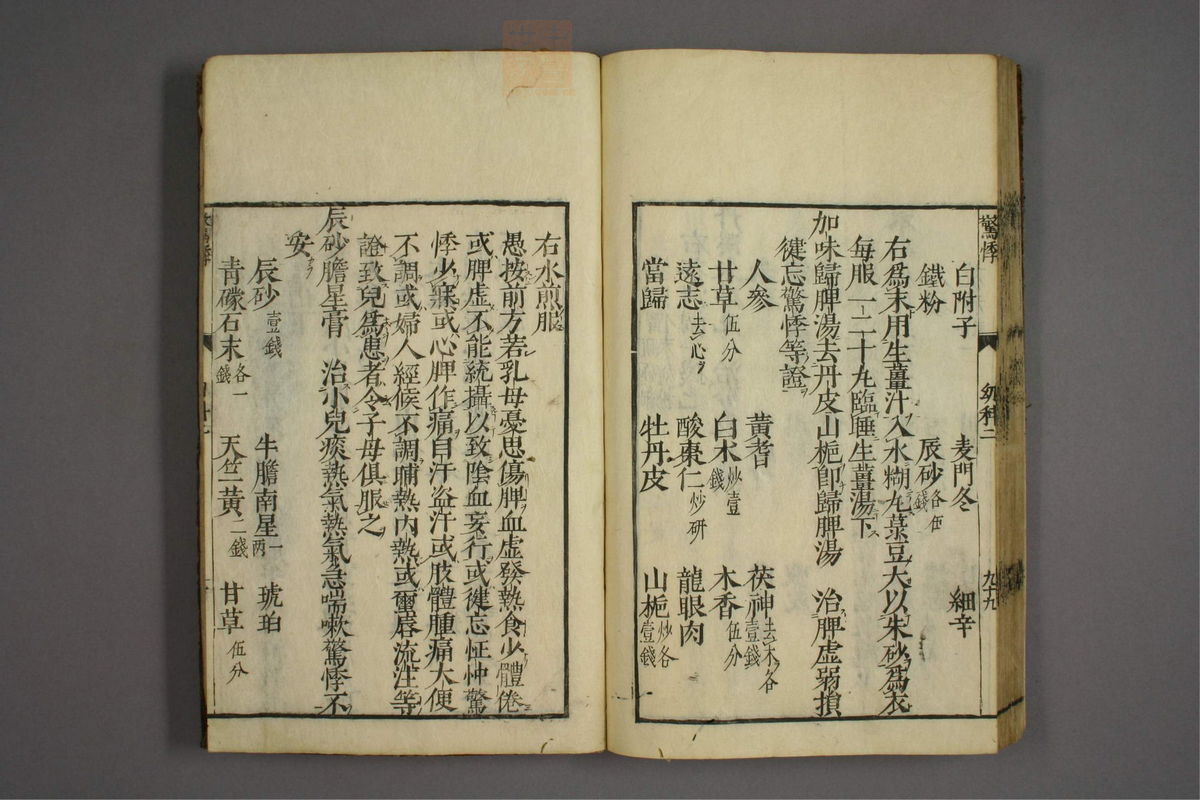 驚悸 幼科二 九十九
白附子 麦門冬 細辛
鐵粉 辰砂各伍錢
右爲末用生薑汁入水糊丸菉豆大以朱砂爲衣
毎服一二十丸臨睡生薑湯下
加味歸脾湯去丹皮山梔即歸脾湯 治脾虛弱損
健忘驚悸等證
人參 黃耆 茯神去木各壹錢
甘草伍分 白朮炒壹錢 木香伍分
遠志去心 酸棗仁炒研 龍眼肉
當歸 牡丹皮 山梔炒各壹錢
右水煎服
愚按前方若乳母憂思傷脾血虛發熱食少體倦
或脾虛不能統攝以致陰血妄行或健忘怔忡驚
悸少寐或心脾作痛自汗盜汗或肢體腫痛大便
不調或婦人經候不調晡熱內熱或瘰癧流注等
證致兒爲患者令子母俱服之
辰砂膽星膏 治小兒痰熱氣熱氣急喘嗽驚悸不
安
辰砂壹錢 牛膽南星一兩 琥珀
靑礞石末各一錢 天竺黃二錢 甘草伍分